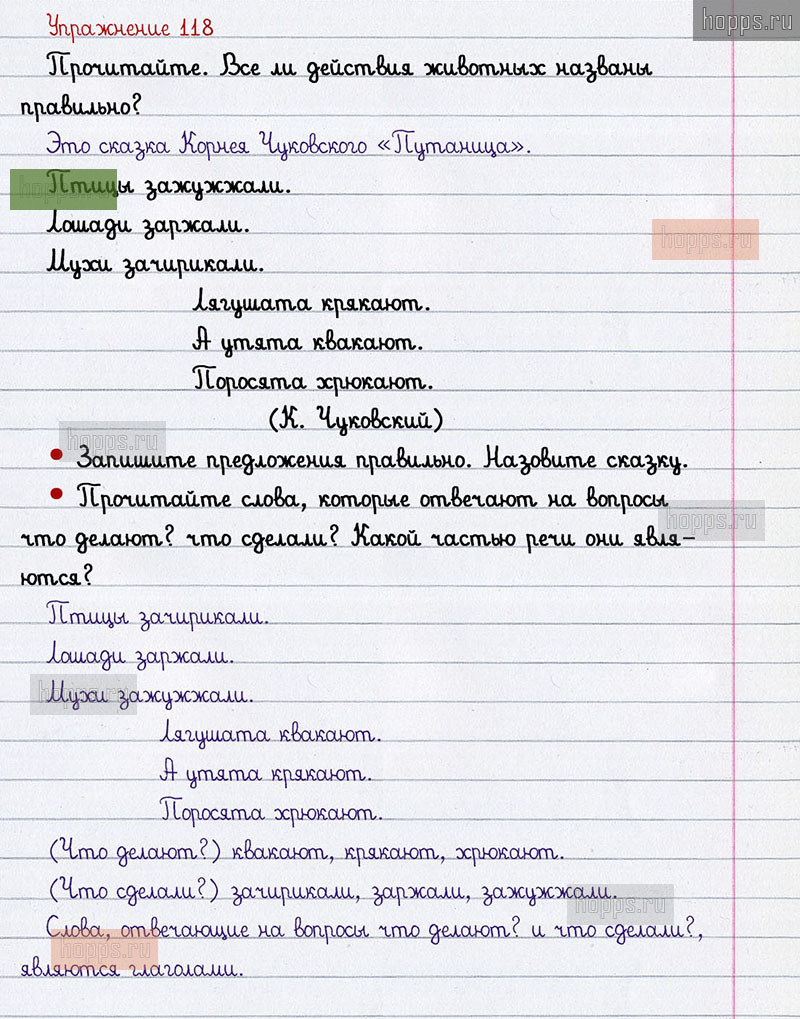 hopps.ru
Упражнение 118
Прочитайте. Все ли действия животных названы
правильно?
Это сказка Корнея Чуковского «Путаница».
hopps.ru
Птицы зажужжали.
Лошади заржали.
hopps.ru
Мухи зачирикали.
Лягушата крякают.
А утята квакают.
Поросята хрюкают.
(К. Чуковский)
hopps.ru
• Запишите предложения правильно. Назовите сказку.
• Прочитайте слова, которые отвечают на вопросы
hopps.ru
что делают? что сделали? Какой частью речи они явля-
ются?
Птицы зачирикали.
Лошади заржали.
hopps.ru
Мухи зажужжали.
Лягушата квакают.
А утята крякают.
Поросята хрюкают.
(Что делают?) квакают, крякают, хрюкают.
(Что сделали?) зачирикали, заржали, зажужжали.
hopps.ru
Слова, отвечающие на вопросы что делают? и что сделали?,
hopps.ru
являются глаголами.